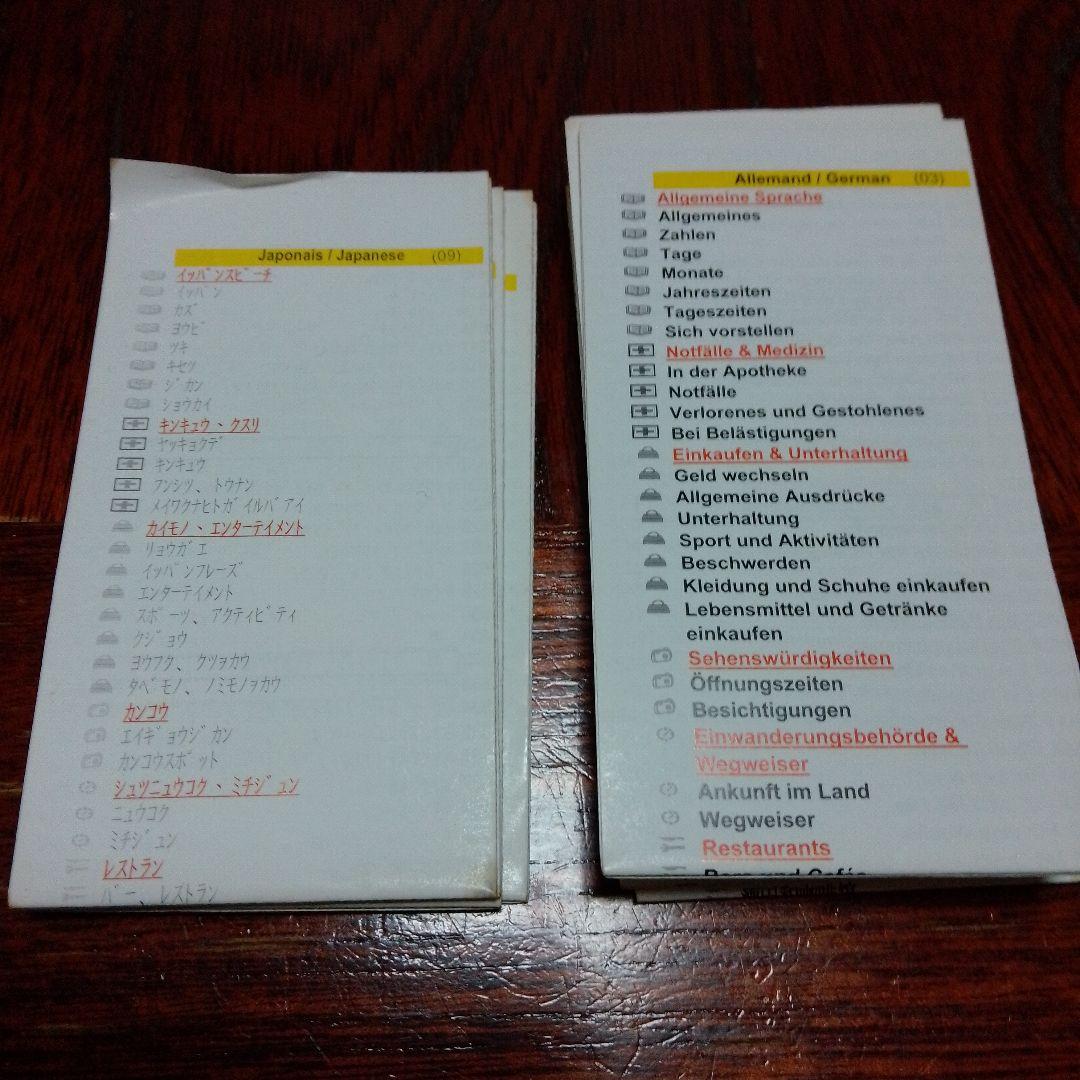 Japonais / Japanese (09)
イッパンスピーチ
イッパン
カズ
ヨウビ
ツキ
キセツ
ジカン
ショウカイ
キンキュウ、クスリ
ヤッキョクデ
キンキュウ
フンシツ、トウナン
メイワクナヒトガイルバアイ
カイモノ、エンターテイメント
リョウガエ
イッパンフレーズ
エンターテイメント
スポーツ、アクティビティ
クジョウ
ヨウフク、クツヲカウ
タベモノ、ノミモノヲカウ
カンコウ
エイギョウジカン
カンコウスポット
シュツニュウコク、ミチジュン
ニュウコク
ミチジュン
レストラン
バー、レストラン
Allemand / German (03)
Allgemeine Sprache
Allgemeines
Zahlen
Tage
Monate
Jahreszeiten
Tageszeiten
Sich vorstellen
Notfälle & Medizin
In der Apotheke
Notfälle
Verlorenes und Gestohlenes
Bei Belästigungen
Einkaufen & Unterhaltung
Geld wechseln
Allgemeine Ausdrücke
Unterhaltung
Sport und Aktivitäten
Beschwerden
Kleidung und Schuhe einkaufen
Lebensmittel und Getränke
einkaufen
Sehenswürdigkeiten
Öffnungszeiten
Besichtigungen
Einwanderungsbehörde &
Wegweiser
Ankunft im Land
Wegweiser
Restaurants
Bars und Cafés